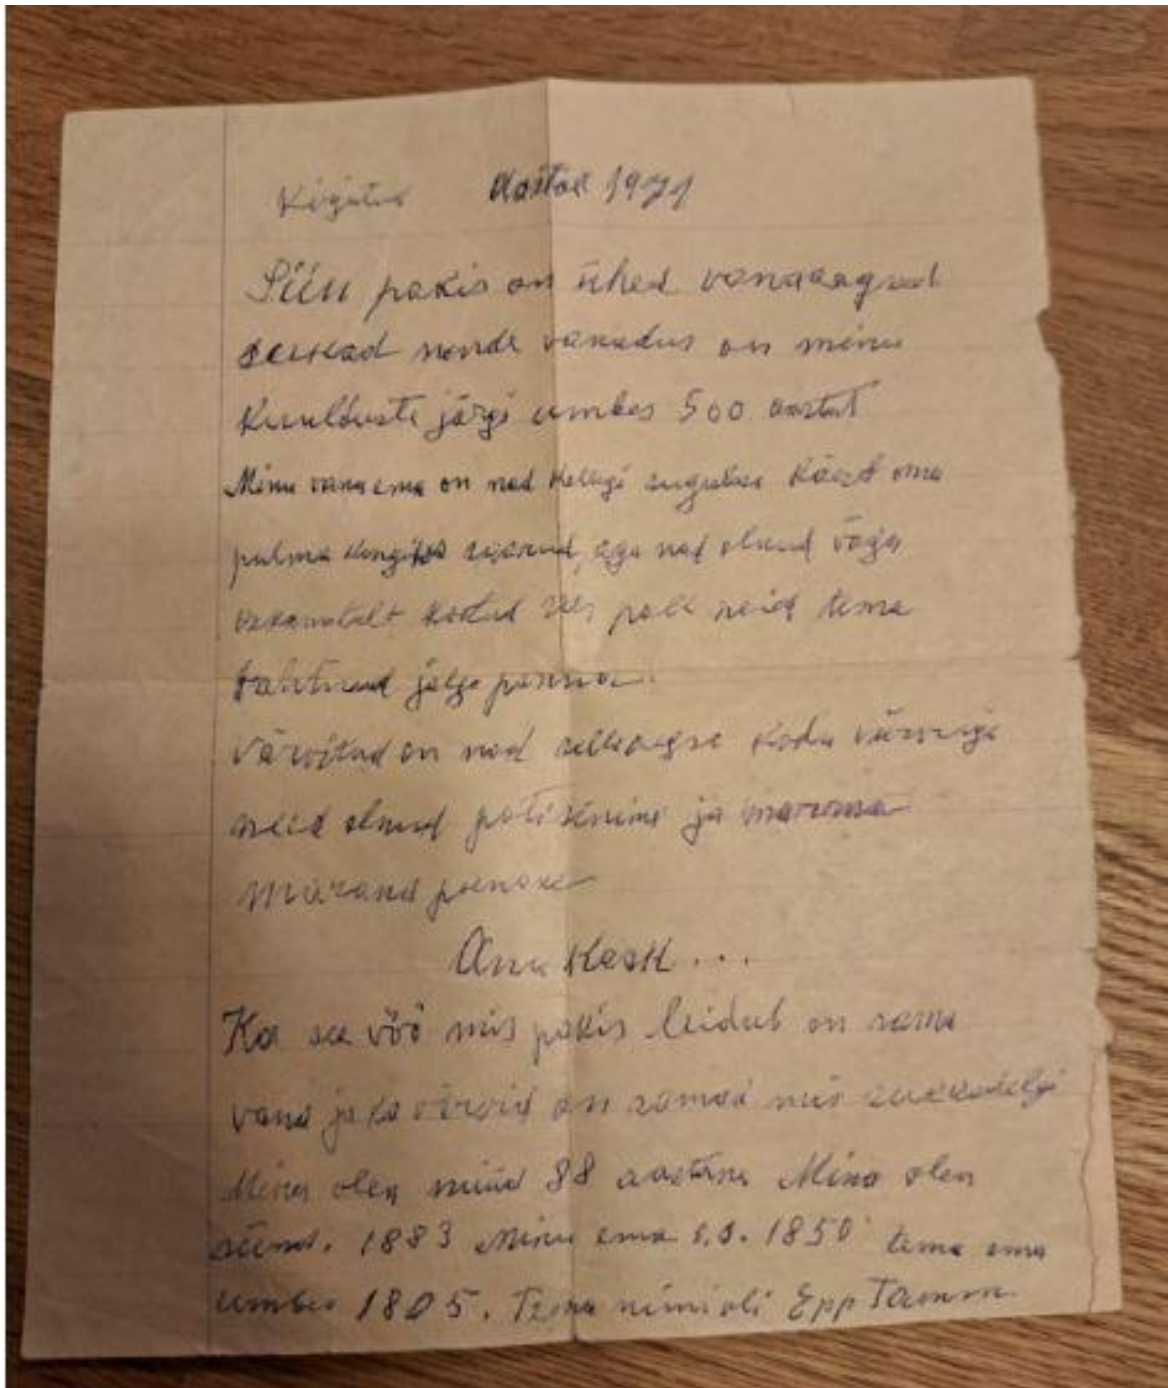 Kirjutud Aastal 1971
Siin pakis on ühed vanaaagsed
sukad nende vanadus on minu
kuulduste järgi umbes 500 aastat
Minu vanaema on nad kellegi sugulase käest oma
pulma kingiks saanud, aga nad olnud väga
kotud ses pole neid tema
tahtnud jalga panna.
Värvitud on nad selleaegse kodu värviga
neid olnud potisinine ja marona
punane
Anu Kask...
Ka see vöö mis pakis leidub on sama
vana ja ka värvid on samad mis sukkadelgi
Mina olen nüüd 88 aastane Mina olen
sünd. 1883 Minu ema s.a. 1850 tema ema
umbes 1805. Tema nimi oli Epp Tamm